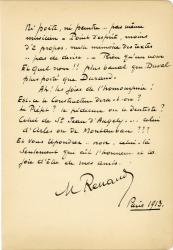 Ni poète, ni peintre... pas même
musicien. Point d'esprit, moins
d'à propos, nulle mémoire des textes
.. pas de devise.. Rien qu'un nom
Et quel nom!! plus banal que Duval
plus porté que Durand.
Ah! la joie de l'homonymie!
Est-ce le Constructeur
le Préfet? le
Celui de St Jean d'Angely.... celui
d'Arles ou de Montauban???
Et vous répondrez: non, celui-là
seulement qui a l'honneur et la
joie d'être de mes amis....
M Renaud
Paris 1913.